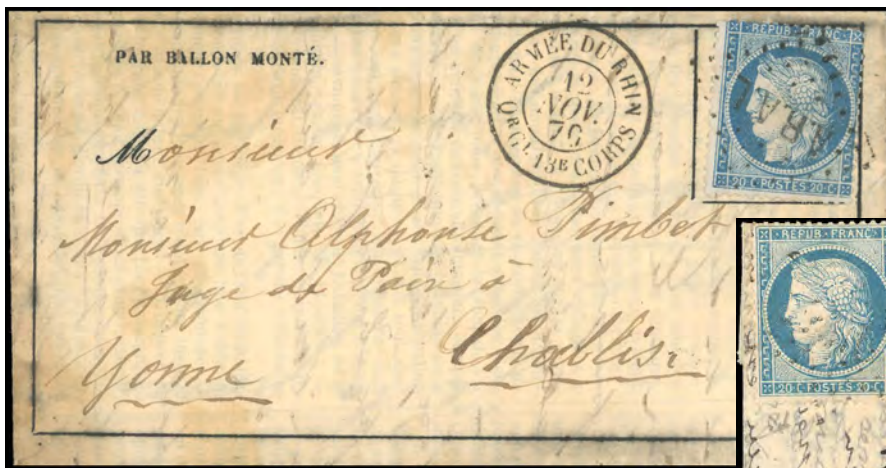 PAR BALLON MONTÉ.
ARMÉE DU RHIN
12
NOV.
70
13E CORPS
REPUB. FRANC.
20 C POSTES 20 C
Monsieur
Monsieur Alphonse Pimbet
Juge de Paix à
Chablis
Yonne
REPUB. FRANC.
20 C POSTES 20 C